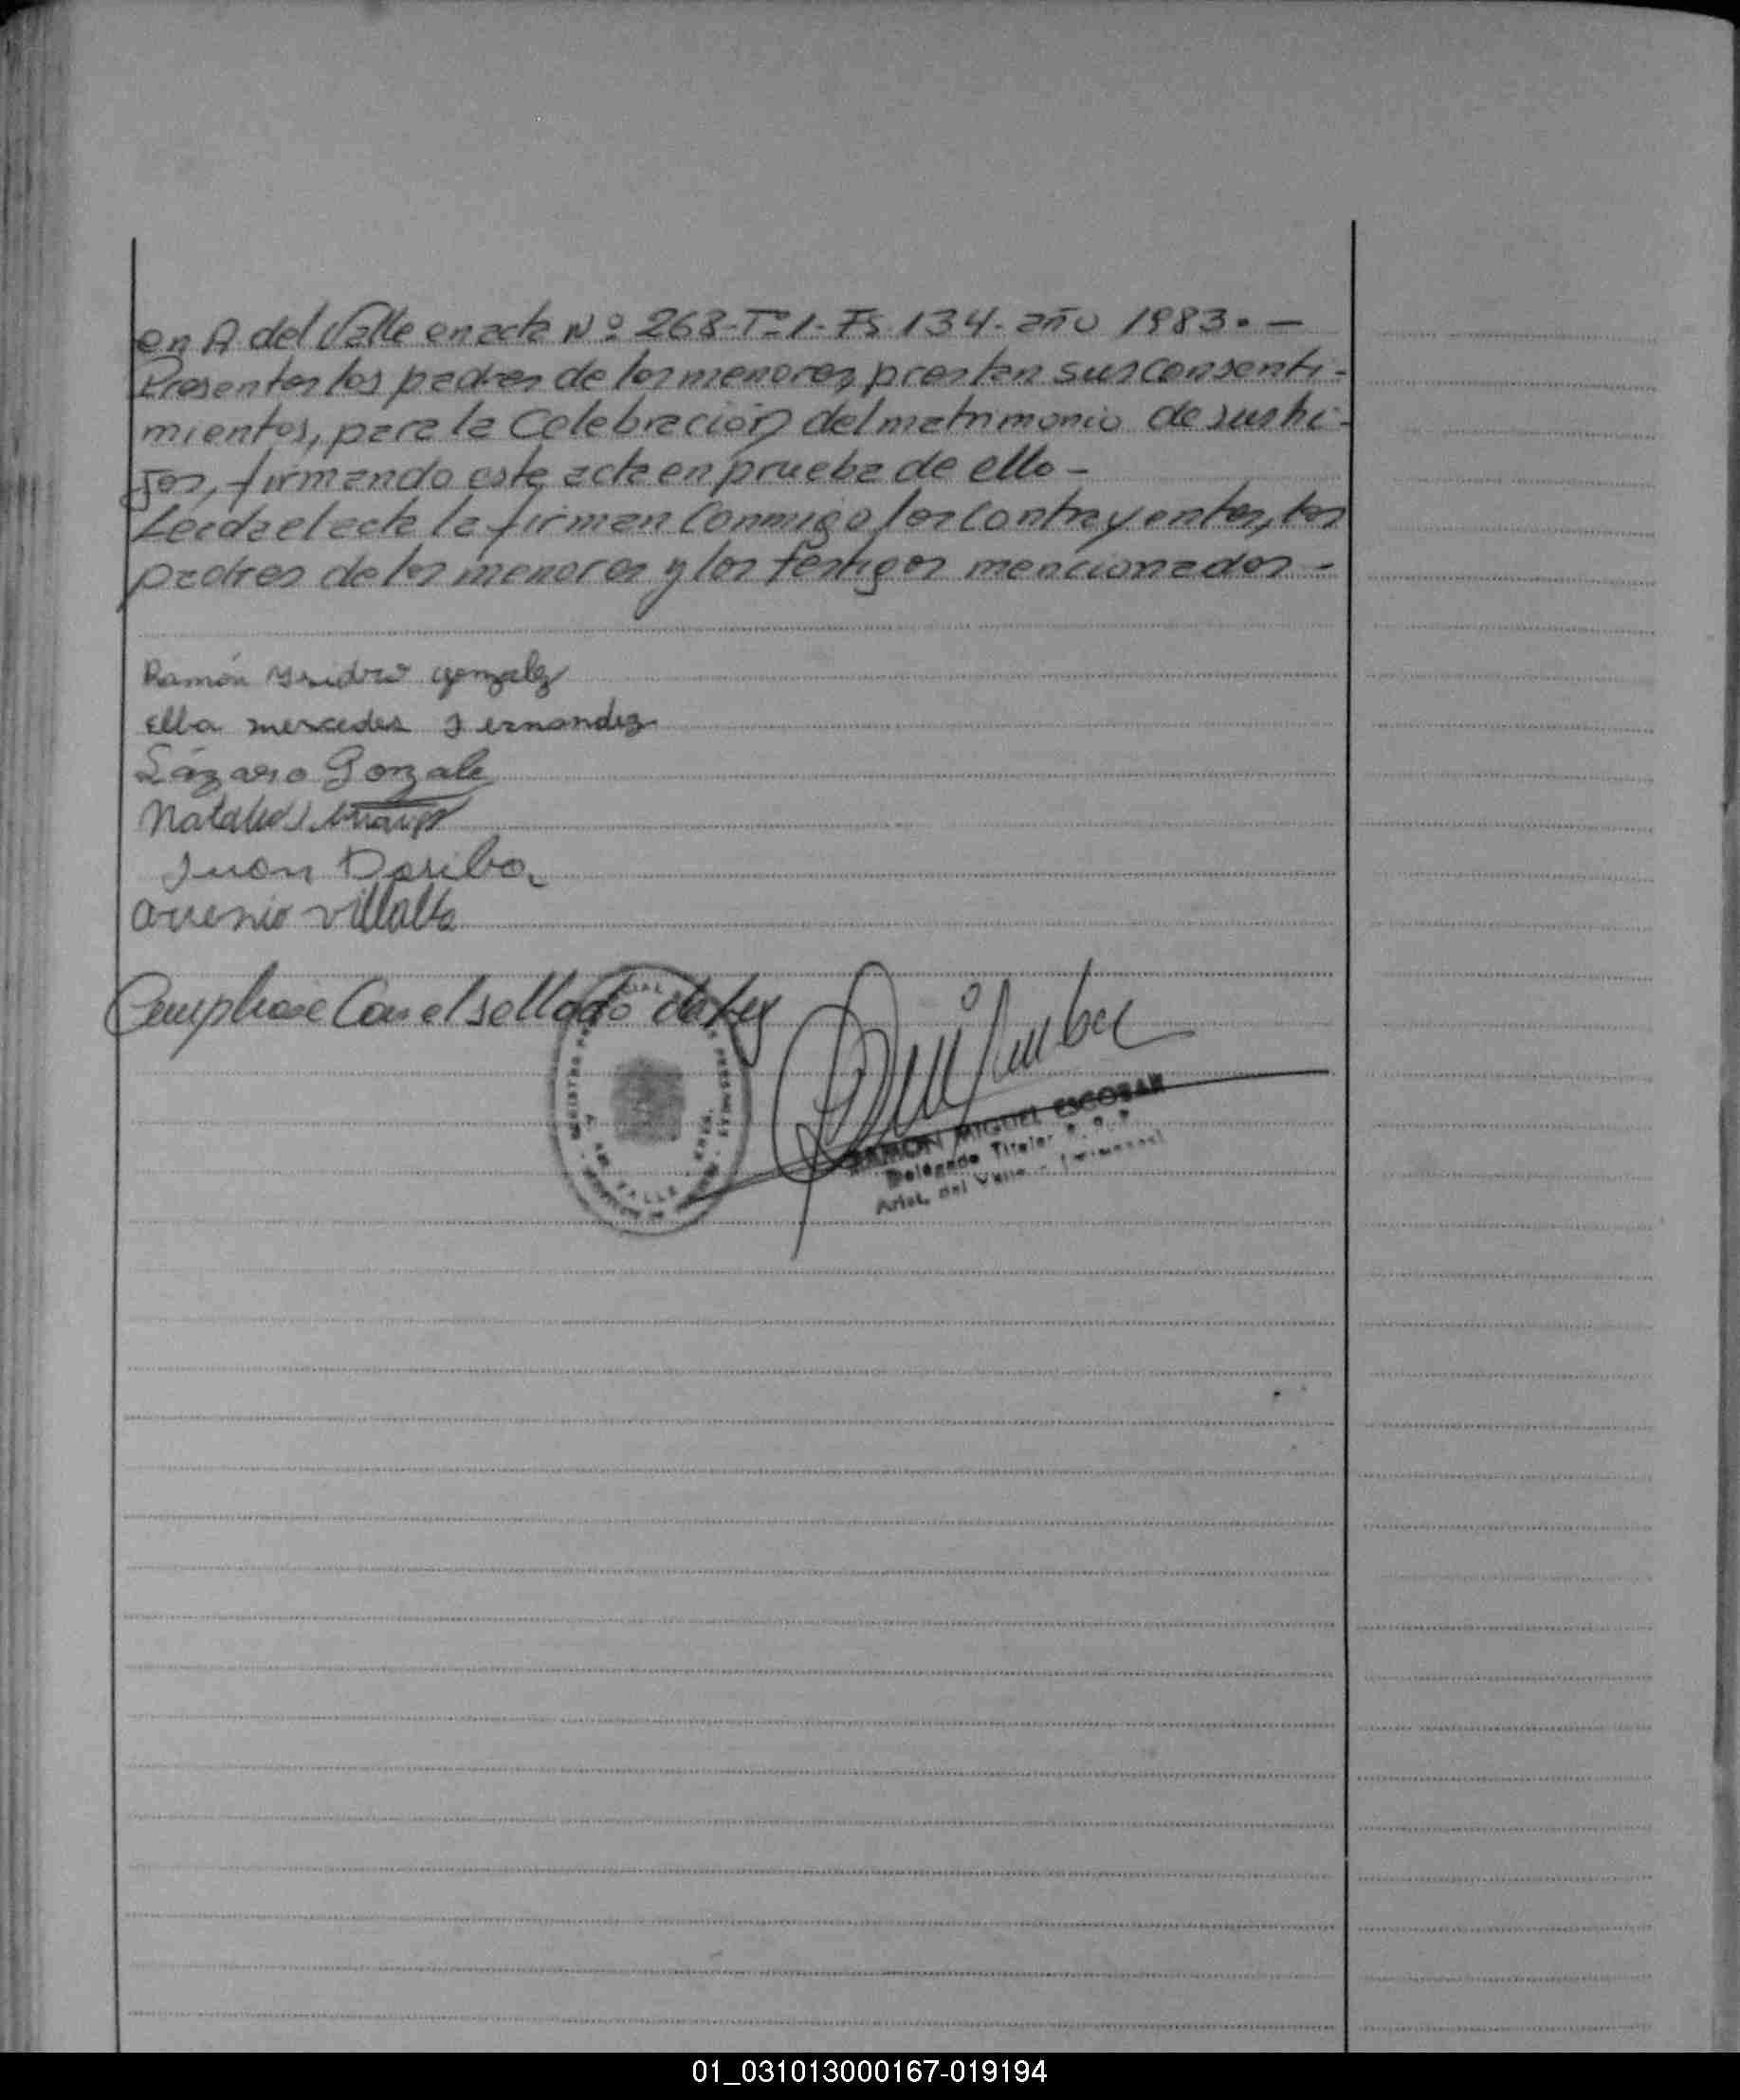 en A. del Valle en acta Nº 268-Tº1-Fs 134- año 1983.-
Presentes los padres de los menores, prestan sus consenti-
mientos, para la Celebración del matrimonio de sus hi-
jos, firmando este acta en prueba de ello-
Leída el acta la firman Conmigo los Contrayentes, los
padres de los menores y los testigos mencionados-
Ramón Ysidro gonzalez
Elba mercedes Fernandez
Lázaro Gonzale
Juan Dariba
villalba
Cumplase Con el sellado de ley
RAMON MIGUEL ESCOBAR
Delegado Titular
Arist. del Valle -
01_031013000167-019194